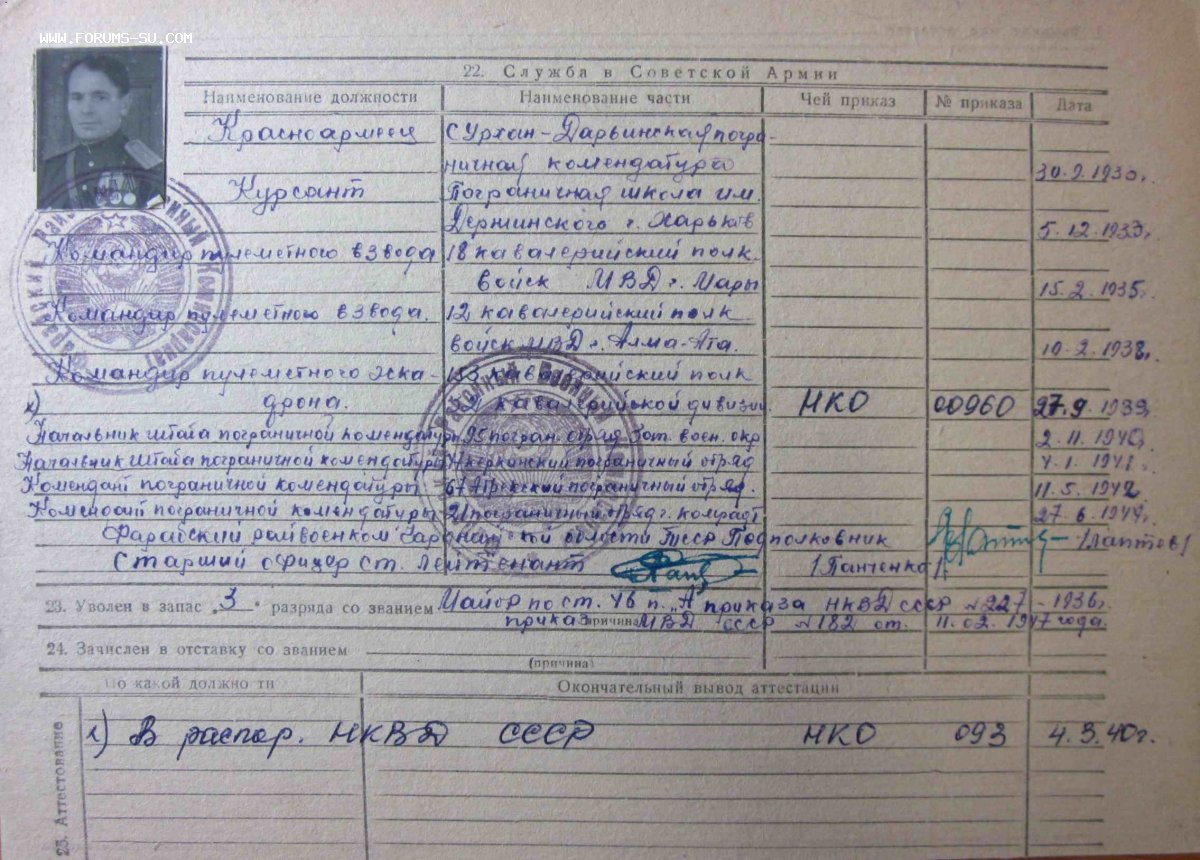 WWW.FORUMS-SU.COM
22. Служба в Советской Армии
Наименование должности Наименование части Чей приказ № приказа Дата
Красноармеец Сурхан-Дарьинская погра-
ничная комендатура 30.9.1930г.
Курсант Пограничная школа им.
Держинского г. Харьков 5.12.1933г.
Командир пулеметного взвода 18 кавалерийский полк
войск МВД г. Мары 15.2.1935г.
Командир пулеметного взвода. 12 кавалерийский полк
войск МВД г. Алма-Ата. 10.2.1938г.
Командир пулеметного эска- 153 кавалерийский полк
х) дрона. кавалерийской дивизии НКО 00960 27.9.1939г.
Начальник штаба пограничной комендатуры 95 погран. отряд Зап. воен. окр 2.11.1940г.
Начальник штаба пограничной комендатуры керкинский пограничный отряд 4.1.1941г.
Комендант пограничной комендатуры 67 Атрекский пограничный отряд. 11.5.1942г.
Комендант пограничной комендатуры 21 пограничный отряд г. Комрат 27.6.1944г.
Фарабский райвоенком области ТССР Подполковник /Лаптев/
Старший офицер ст. лейтенант /Панченко/
23. Уволен в запас „3" разряда со званием Майор по ст. 46 п. „А" приказа НКВД СССР №227 - 1936г.
приказ (причина) МВД СССР №182 от. 11.02.1947 года.
24. Зачислен в отставку со званием
(причина)
По какой должности Окончательный вывод аттестации
25. Аттестование
х) В распор. НКВД СССР НКО 093 4.3.40г.